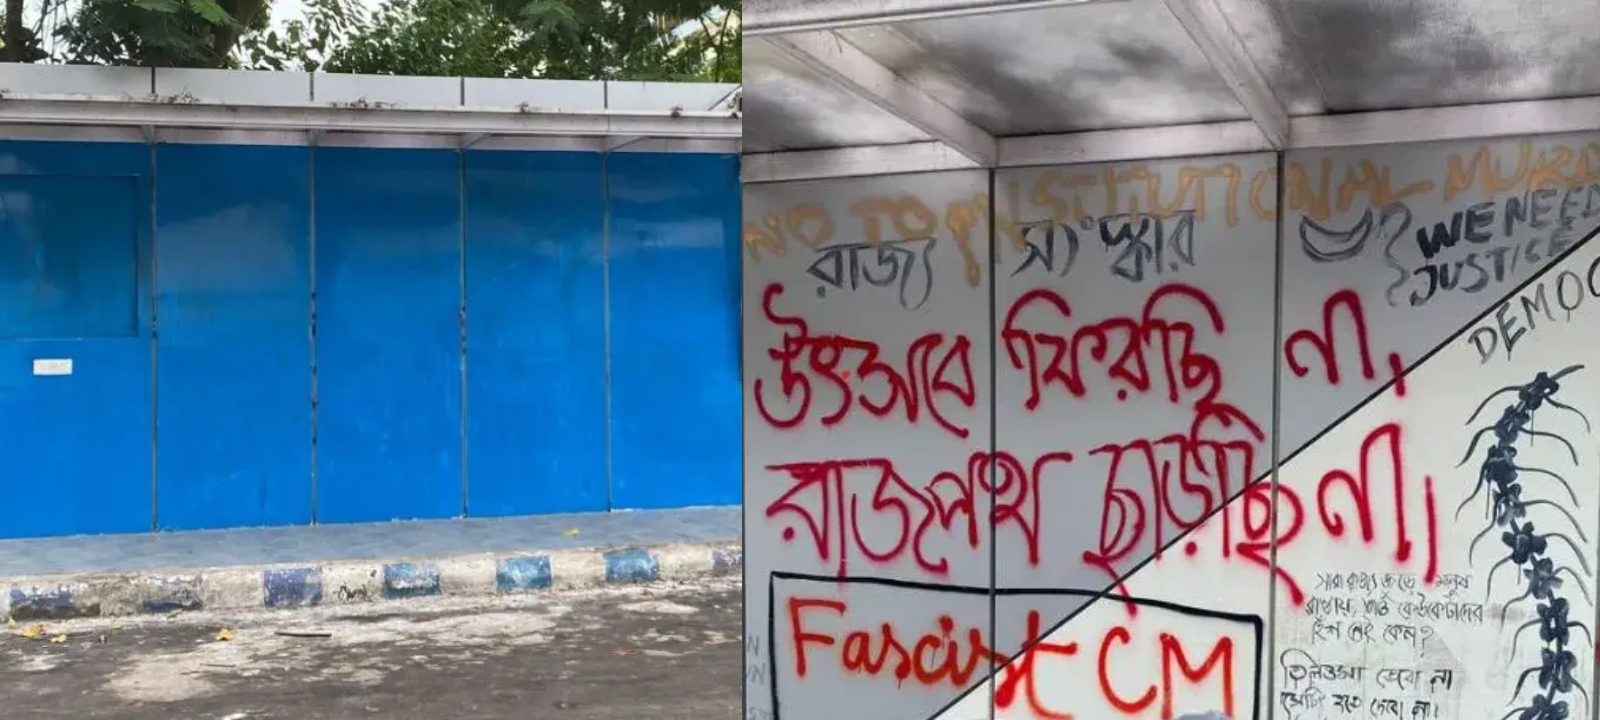 NO TO INSTITUTIONAL MURD
রাজ্য সংস্কার
WE NEED
JUSTICE
DEMOC
উৎসবে ফিরছি না,
রাজপথ ছাড়ছি না।
সারা রাজ্য জুড়ে মানুষ
রাস্তায়,
হুঁশ নেই কেন?
Fascist CM
তিলোত্তমা ভেবো না
সেটিং হতে দেবো না।